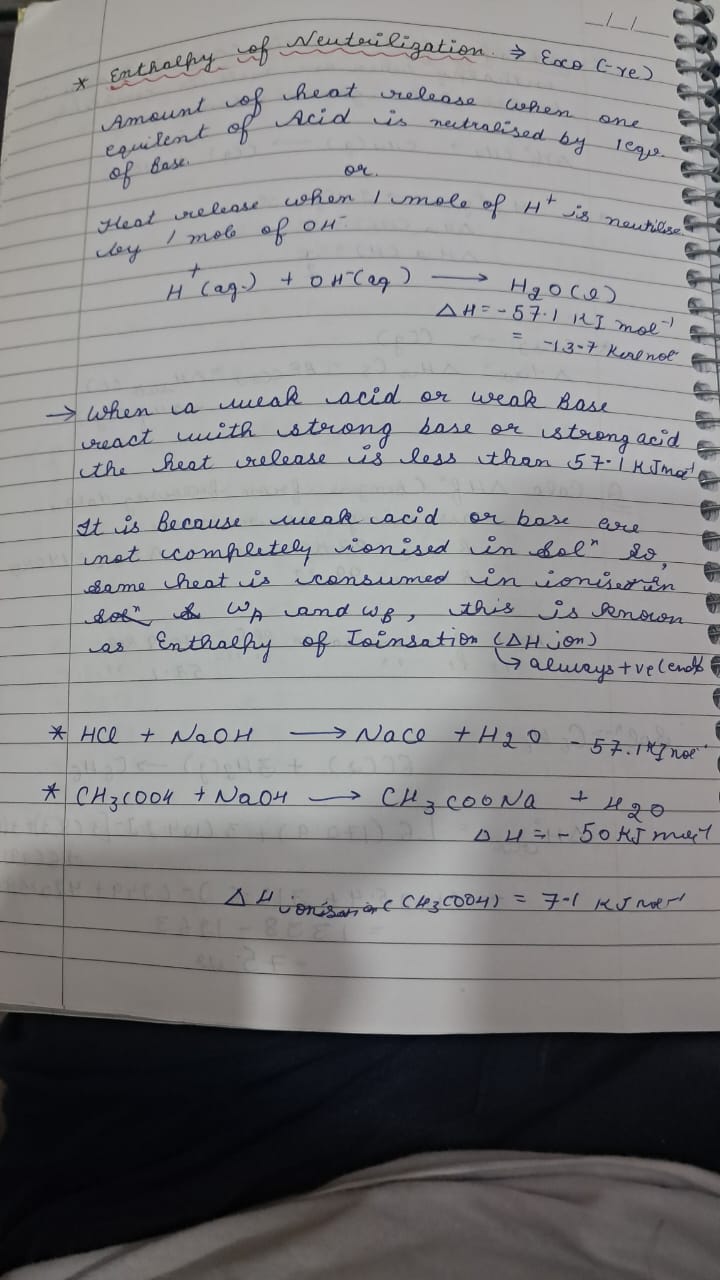 * Enthalpy of Neuteilization. ⇒ Exo (-ve)
Amount of heat release when one
equilent of Acid is neutralised by 1eqv.
of Base.
or.
Heat release when 1 mole of H⁺ is neutilise
by 1 mole of OH⁻
H⁺(aq.) + OH⁻(aq) ⟶ H2O(l)
ΔH = -57.1 KJ mol⁻¹
= -13.7 Kcal mol⁻
→ When a weak acid or weak Base
react with strong base or strong acid
the heat release is less than 57.1 KJ mol⁻¹
It is Because weak acid or base are
not completely ionised in Solⁿ So,
Same heat is consumed in ionisation
WA and WB, this is known
as Enthalpy of Ioinsation (ΔH ion)
↳ always +ve (endo
* HCl + NaOH ⟶ NaCl + H2O -57.1 KJ mol⁻
* CH3COOH + NaOH ⟶ CH3COONa + H2O
ΔH = -50 KJ mol⁻¹
ΔH ionisation (CH3COOH) = 7.1 KJ mol⁻¹